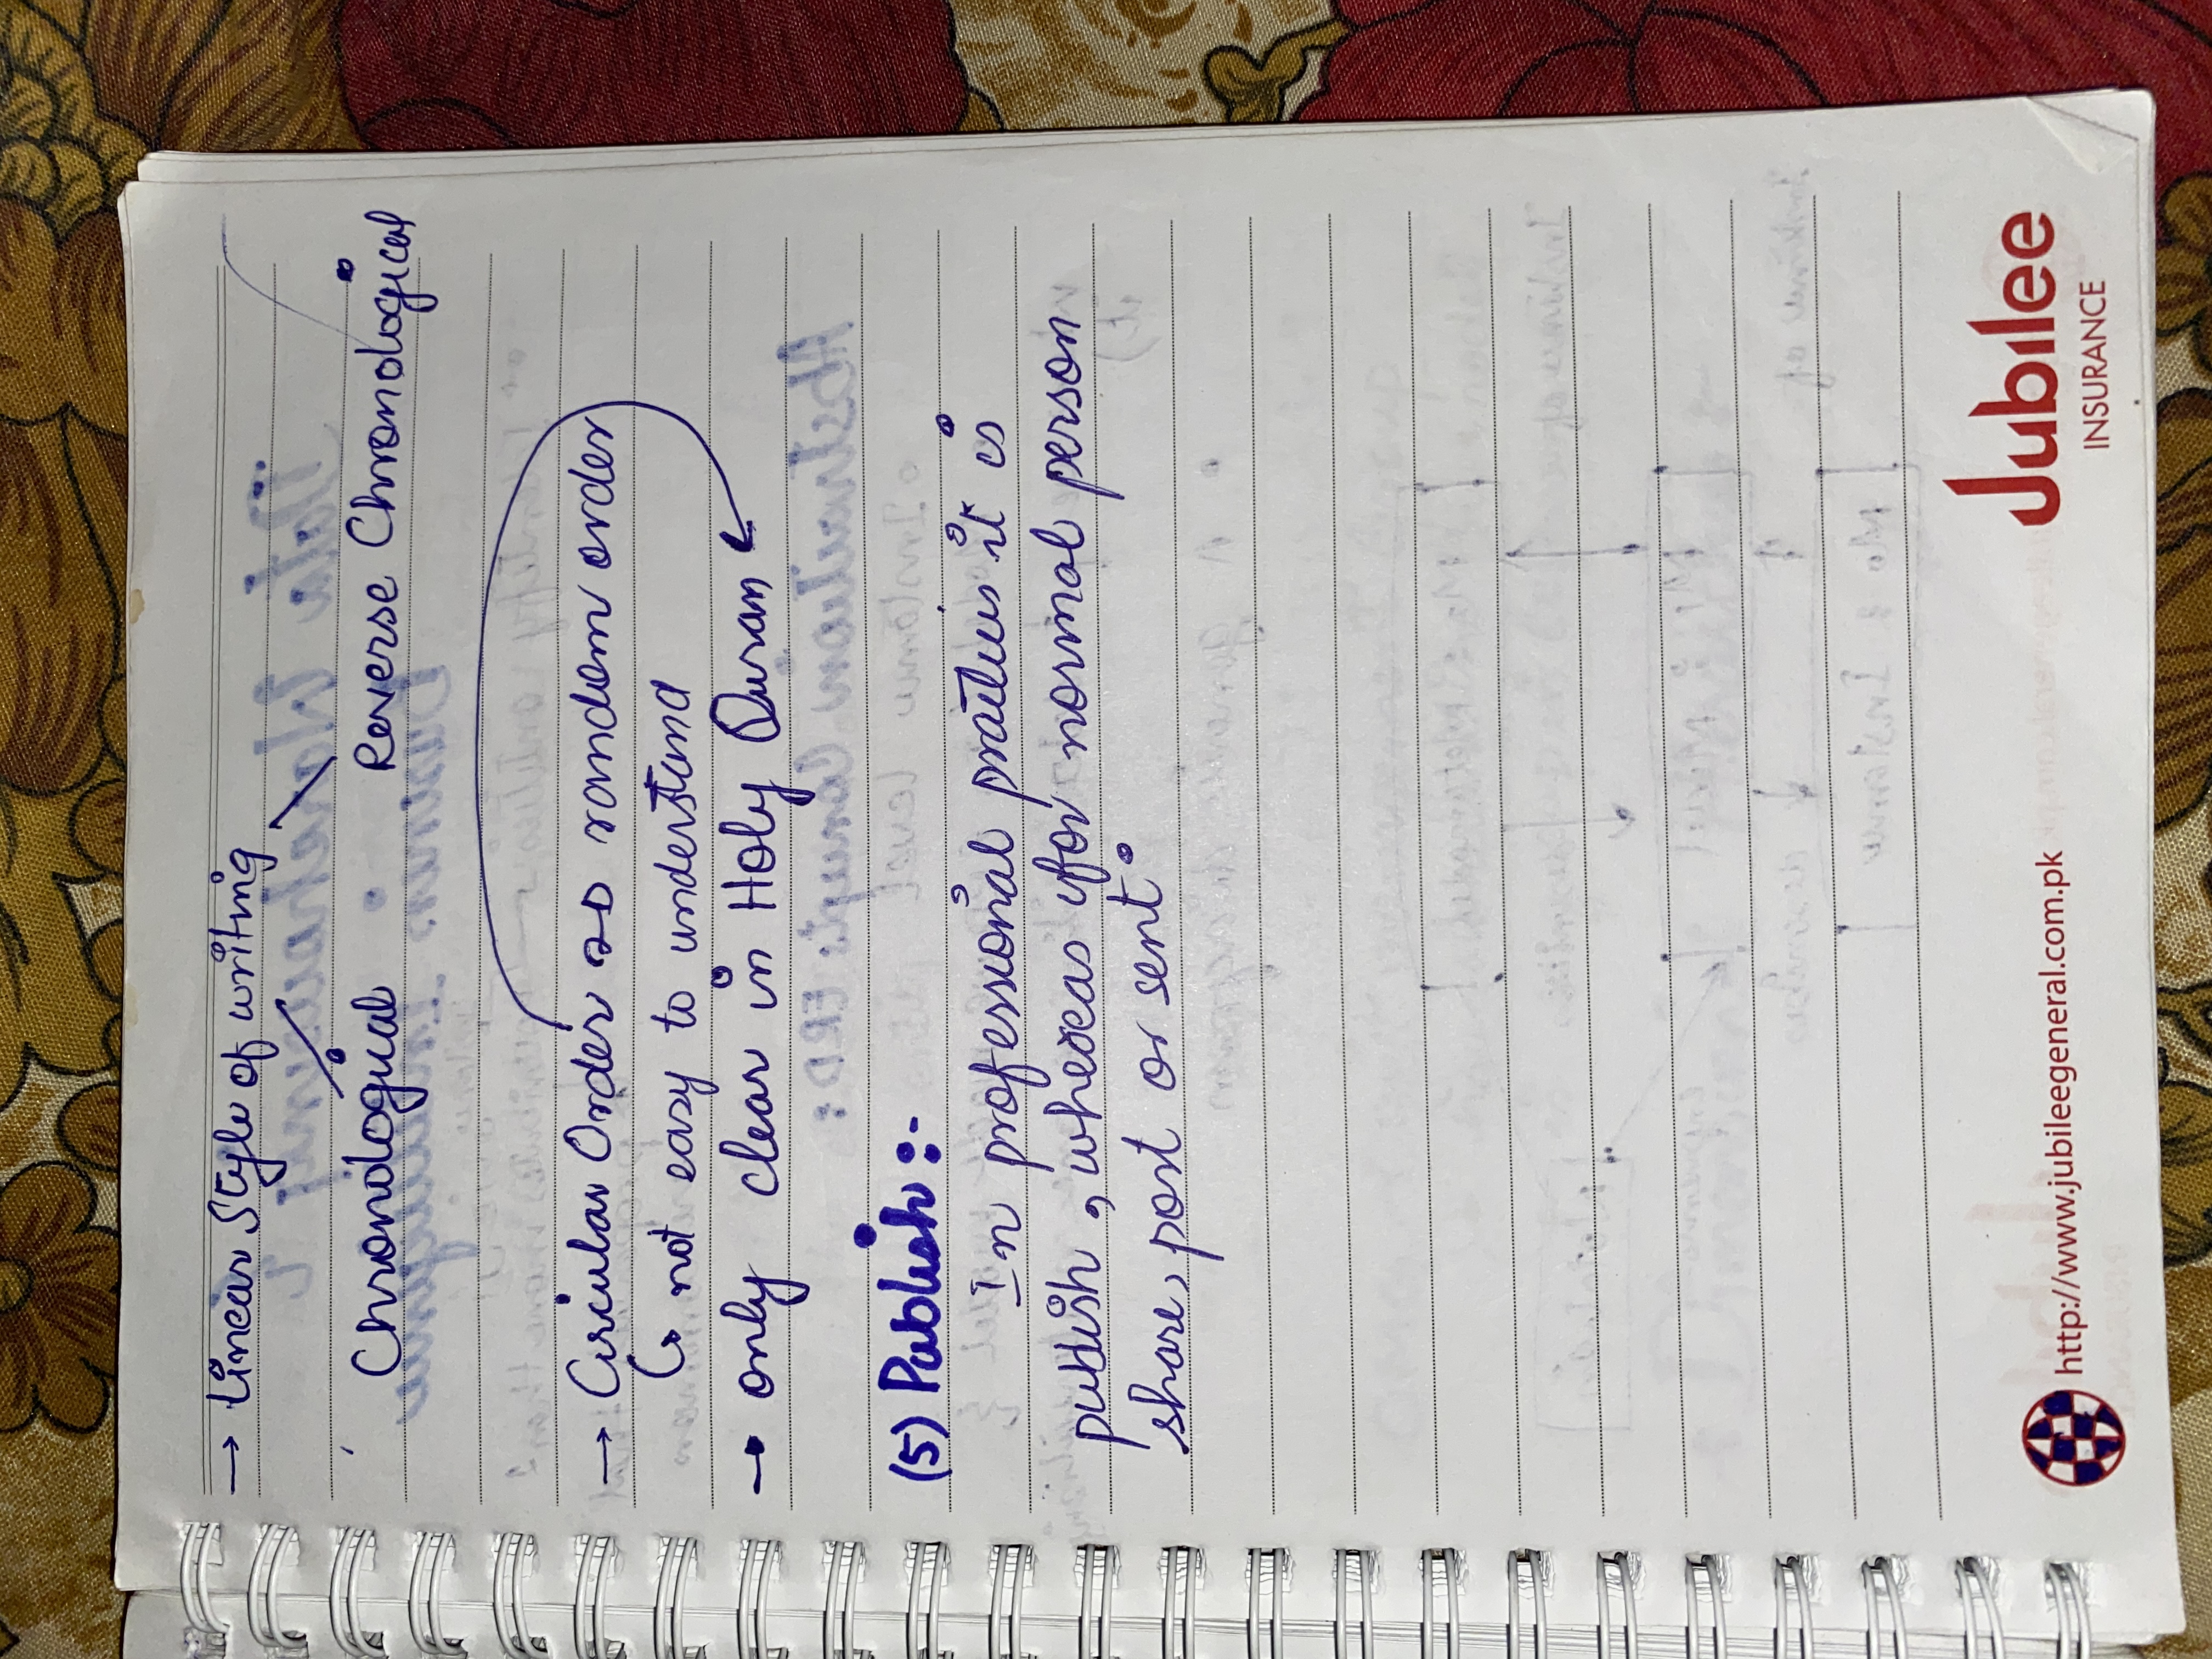 → Linear Style of writing
Chronological Reverse Chronological
→ Circular Order so random order
↳ not easy to understand
→ only clear in Holy Quran
(5) Publish :-
In professional practices it is
publish, whereas for normal person
share, post or sent
http://www.jubileegeneral.com.pk
Jubilee
INSURANCE